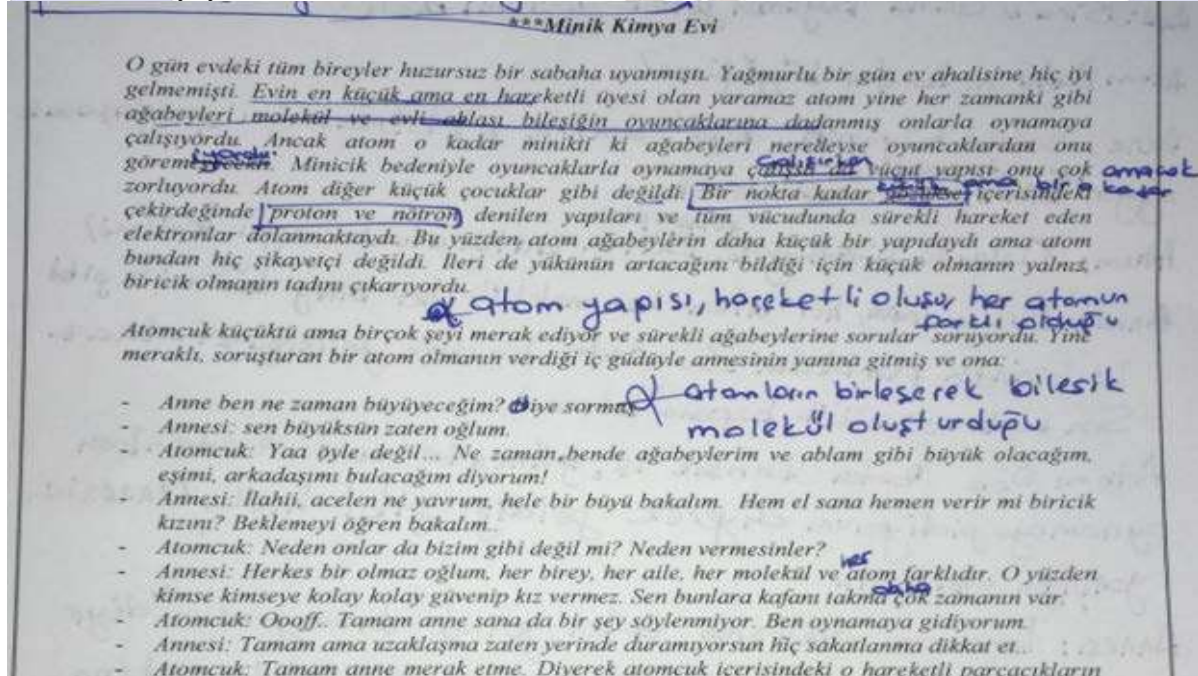 ***Minik Kimya Evi
O gün evdeki tüm bireyler huzursuz bir sabaha uyanmıştı. Yağmurlu bir gün ev ahalisine hiç iyi
gelmemişti. Evin en küçük ama en hareketli üyesi olan yaramaz atom yine her zamanki gibi
ağabeyleri molekül ve evli ablası bileşiğin oyuncaklarına dadanmış onlarla oynamaya
çalışıyordu. Ancak atom o kadar minikti ki ağabeyleri neredeyse oyuncaklardan onu
iyordu. çalışırken
göremeyecekti. Minicik bedeniyle oyuncaklarla oynamaya çalışsa da vücut yapısı onu çok
zorluyordu. Atom diğer küçük çocuklar gibi değildi. Bir nokta kadar içerisindeki
ama bir o kadar
çekirdeğinde proton ve nötron denilen yapıları ve tüm vücudunda sürekli hareket eden
elektronlar dolanmaktaydı. Bu yüzden atom ağabeylerin daha küçük bir yapıdaydı ama atom
bundan hiç şikayetçi değildi. İleri de yükünün artacağını bildiği için küçük olmanın yalnız,
biricik olmanın tadını çıkarıyordu.
atom yapısı, hareketli oluşu, her atomun
farklı olduğu
Atomcuk küçüktü ama birçok şeyi merak ediyor ve sürekli ağabeylerine sorular soruyordu. Yine
meraklı, soruşturan bir atom olmanın verdiği iç güdüyle annesinin yanına gitmiş ve ona:
atomların birleşerek bileşik
molekül oluşturduğu
- Anne ben ne zaman büyüyeceğim? diye sormuş
- Annesi: sen büyüksün zaten oğlum.
- Atomcuk: Yaa öyle değil... Ne zaman bende ağabeylerim ve ablam gibi büyük olacağım,
eşimi, arkadaşımı bulacağım diyorum!
- Annesi: İlahii, acelen ne yavrum, hele bir büyü bakalım. Hem el sana hemen verir mi biricik
kızını? Beklemeyi öğren bakalım..
- Atomcuk: Neden onlar da bizim gibi değil mi? Neden vermesinler?
her
- Annesi: Herkes bir olmaz oğlum, her birey, her aile, her molekül ve atom farklıdır. O yüzden
daha
kimse kimseye kolay kolay güvenip kız vermez. Sen bunlara kafanı takma çok zamanın var.
- Atomcuk: Oooff.. Tamam anne sana da bir şey söylenmiyor. Ben oynamaya gidiyorum.
- Annesi: Tamam ama uzaklaşma zaten yerinde duramıyorsun hiç sakatlanma dikkat et...
- Atomcuk: Tamam anne merak etme. Diyerek atomcuk içerisindeki o hareketli parçacıkların